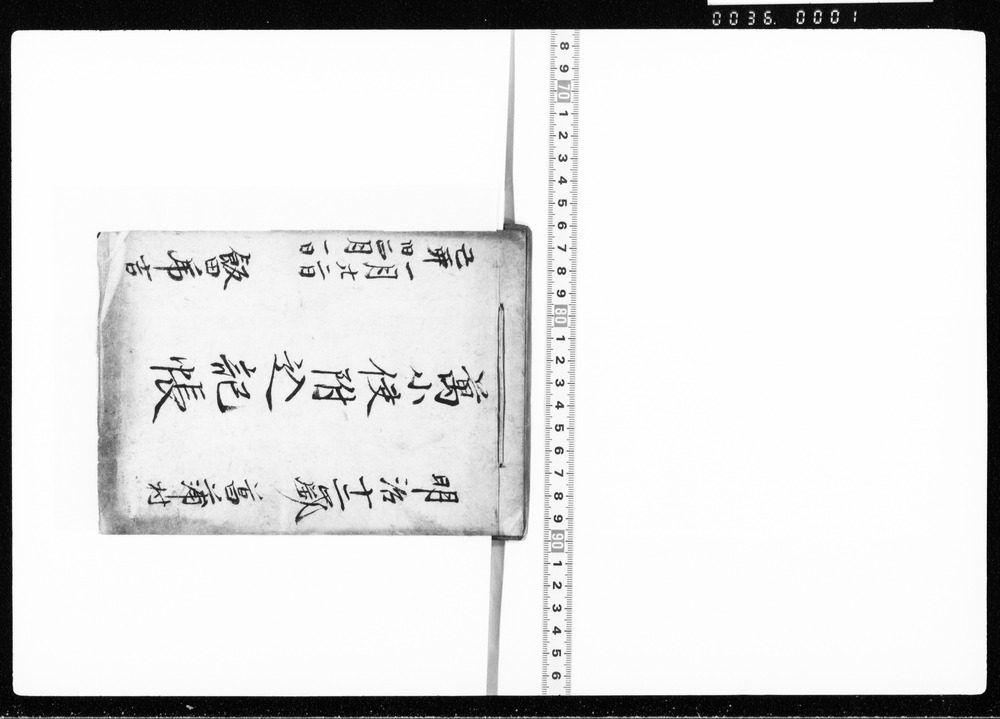 明治十二歳
村
萬小使附込記帳
己卯
一月廿二日
旧正月一日
飯田 吉
0036. 0001
8 9 70 1 2 3 4 5 6 7 8 9 80 1 2 3 4 5 6 7 8 9 90 1 2 3 4 5 6